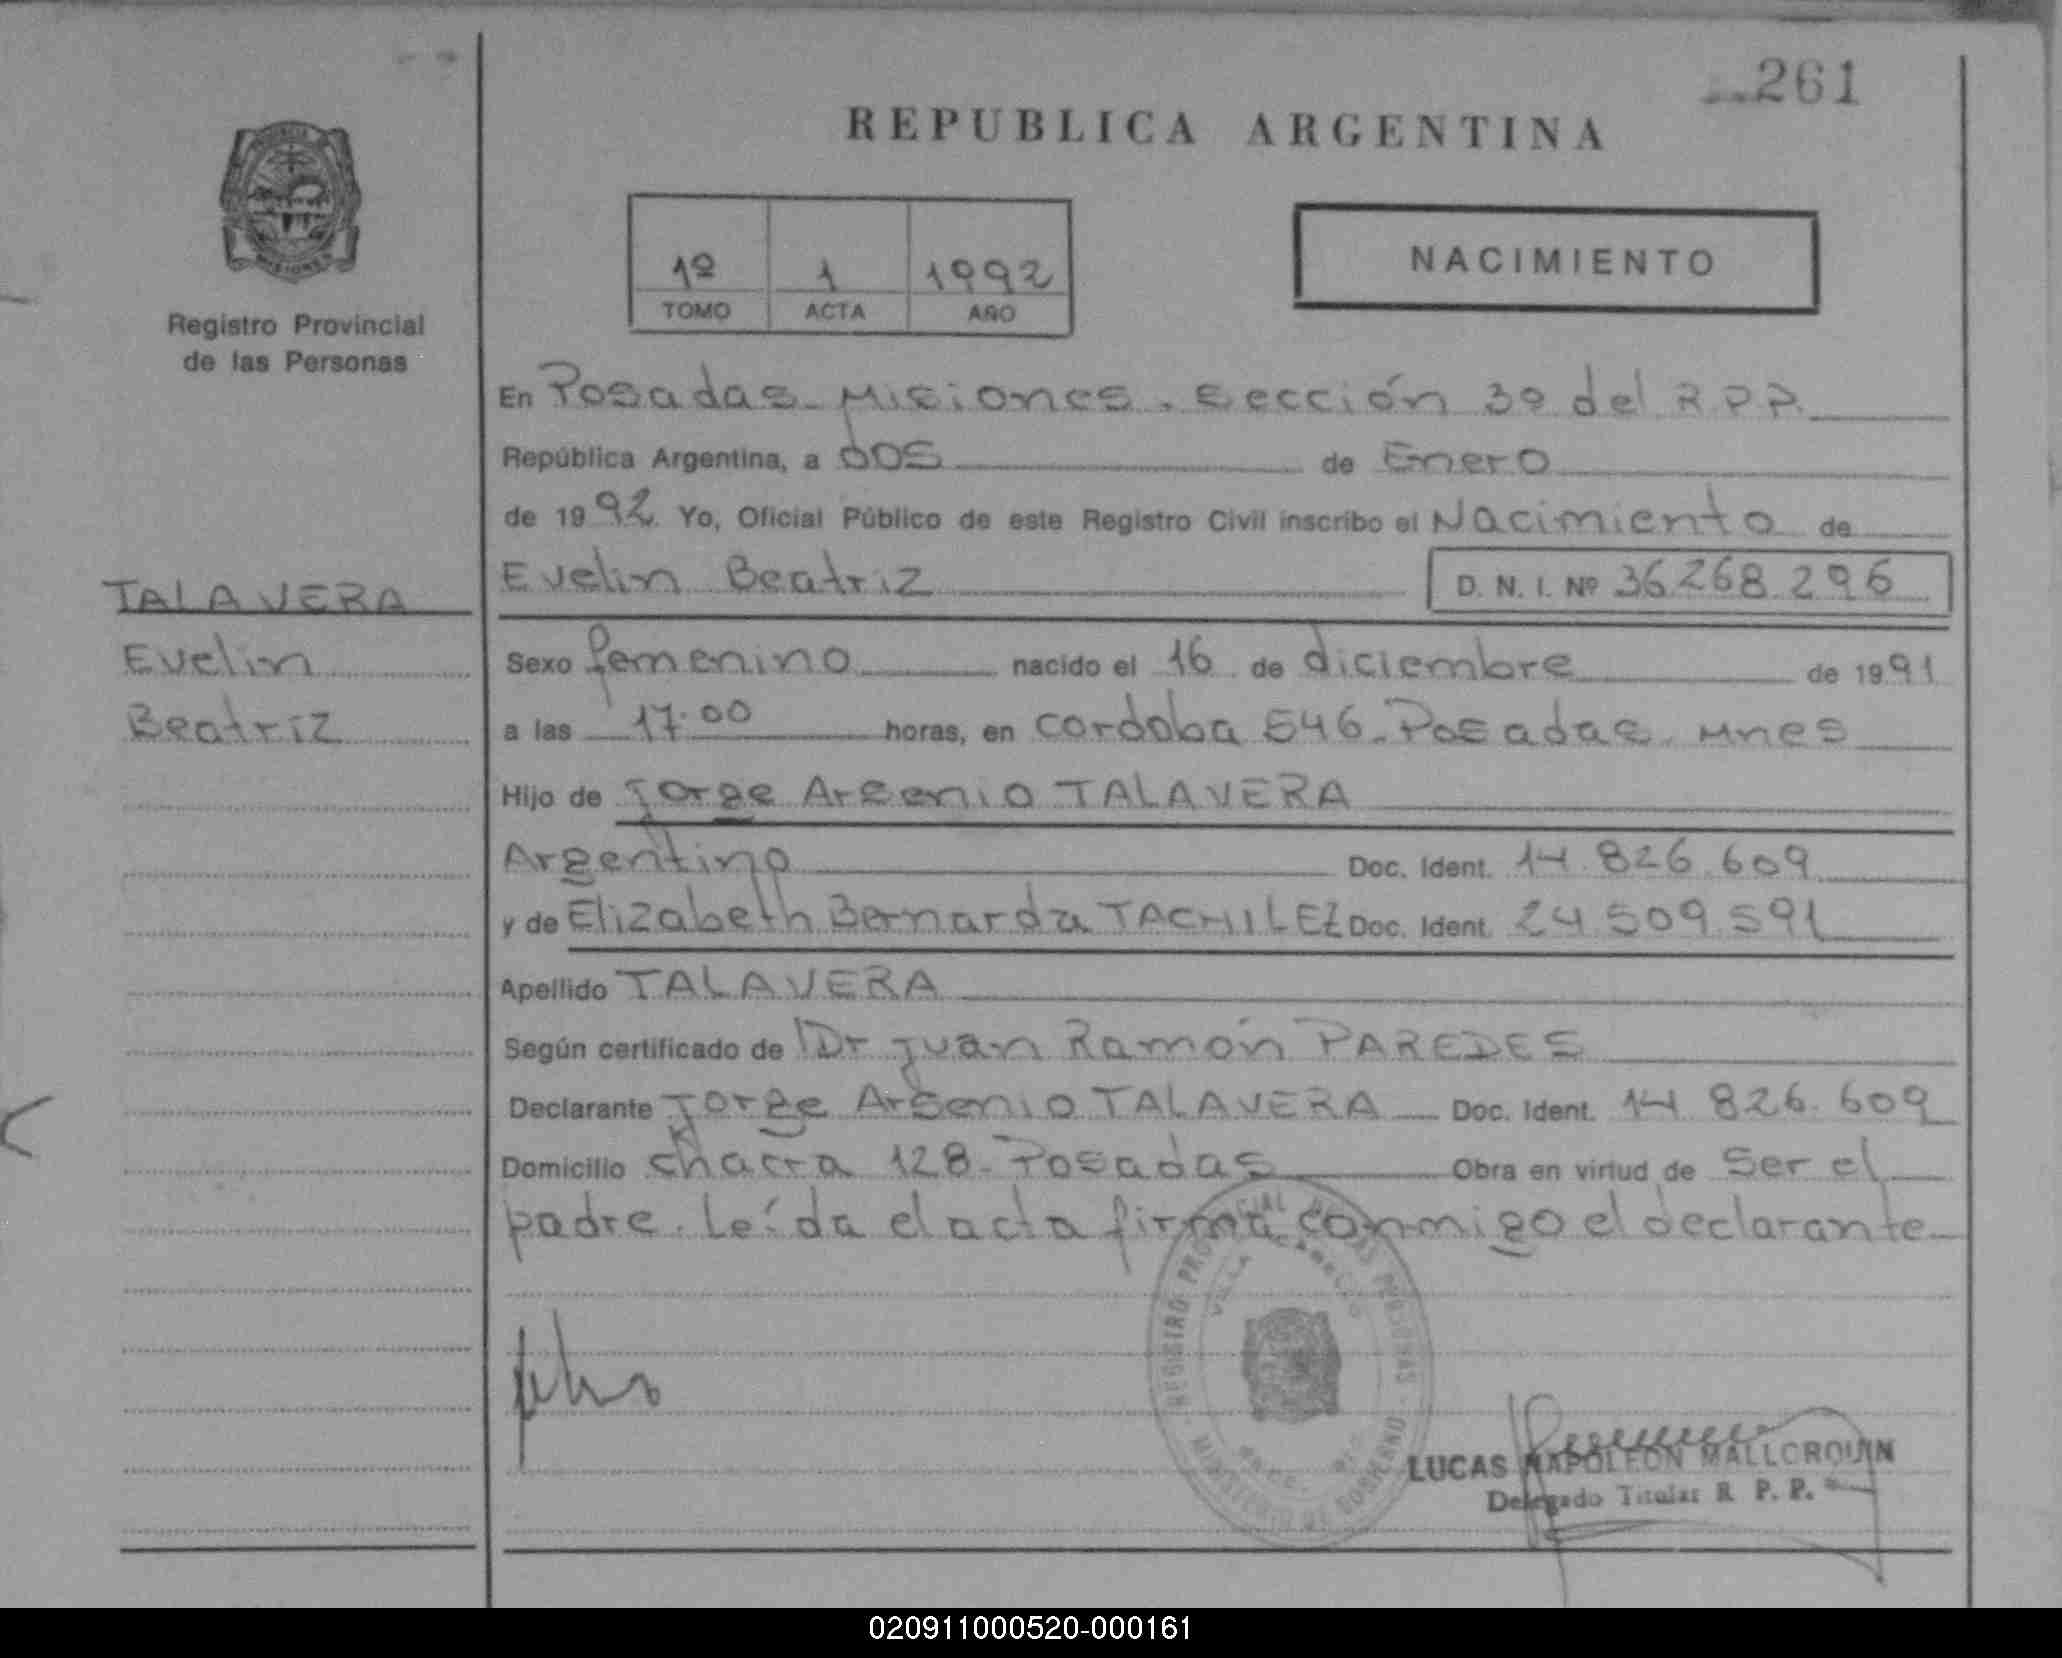 261
REPUBLICA ARGENTINA
1º 1 1992
TOMO ACTA AÑO
NACIMIENTO
MISIONES
Registro Provincial
de las Personas
TALAVERA
Evelin
Beatriz
En Posadas - Misiones. Sección 3º del R.P.P.
República Argentina, a dos de Enero
de 1992. Yo, Oficial Público de este Registro Civil inscribo el Nacimiento de
Evelin Beatriz D. N. I. Nº 36.268.296
Sexo femenino nacido el 16 de diciembre de 1991
a las 17:00 horas, en cordoba 546 - Posadas - Mnes
Hijo de Jorge Arsenio TALAVERA
Argentino Doc. Ident. 14.826.609
y de Elizabeth Bernarda TACHILEZ Doc. Ident. 24.509.591
Apellido TALAVERA
Según certificado de Dr Juan Ramón PAREDES
Declarante Jorge Arsenio TALAVERA Doc. Ident. 14.826.609
Domicilio chacra 128 - Posadas Obra en virtud de ser el
padre. Leída el acta firma conmigo el declarante
REGISTRO PROVINCIAL DE LAS PERSONAS
VILLA
MINISTERIO DE GOBIERNO
LUCAS NAPOLEON MALLORQUIN
Delegado Titular R. P. P.
020911000520-000161